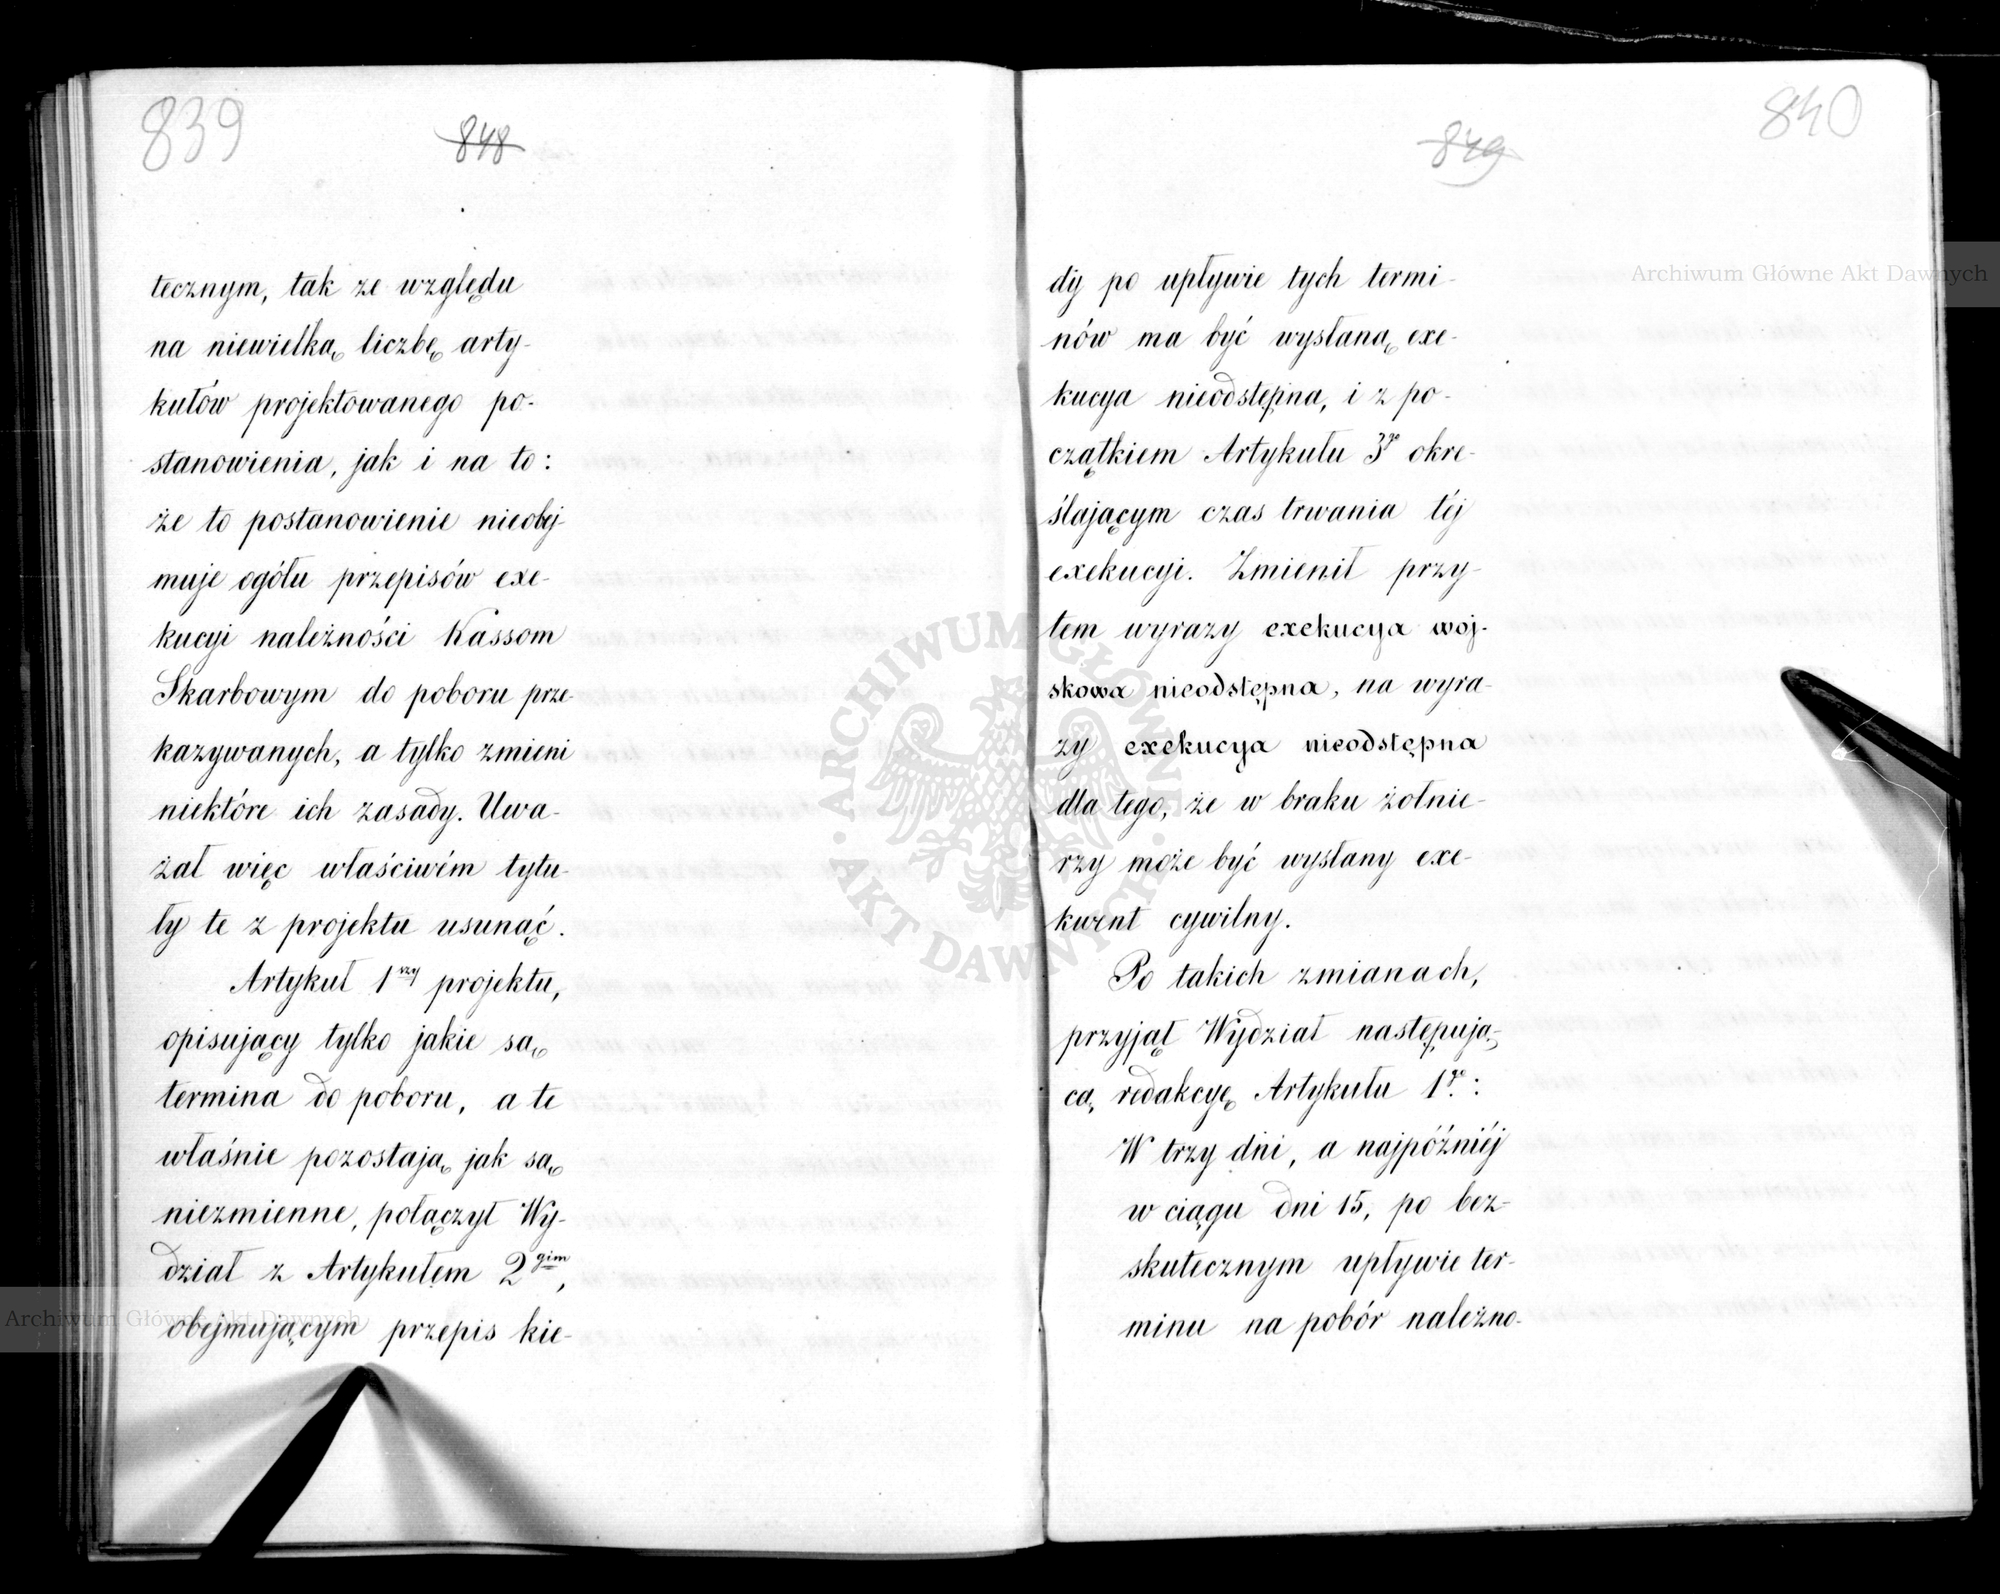 839
848
tecznym, tak ze względu
na niewielką liczbę arty-
kułów projektowanego po-
stanowienia, jak i na to:
że to postanowienie nieobej-
muje ogółu przepisów exe-
kucyi należności Kassom
Skarbowym do poboru prze-
kazywanych, a tylko zmieni
niektóre ich zasady. Uwa-
żał więc właściwém tytu-
ły te z projektu usunąć.
Artykuł 1wszy projektu,
opisujący tylko jakie są
termina do poboru, a te
właśnie pozostają jak są
niezmienne, połączył Wy-
dział z Artykułem 2gim,
obejmującym przepis kie-
840
849
dy po upływie tych termi-
nów ma być wysłaną exe-
kucya nieodstępna, i z po-
czątkiem Artykułu 3go okre-
ślającym czas trwania téj
exekucyi. Zmienił przy-
tem wyrazy exekucya woj-
skowa nieodstępna, na wyra-
zy exekucya nieodstępna
dla tego, że w braku żołnie-
rzy może być wysłany exe-
kwent cywilny.
Po takich zmianach,
przyjął Wydział następują-
cą redakcyę Artykułu 1go:
W trzy dni, a najpóźniéj
w ciągu dni 15, po bez-
skutecznym upływie ter-
minu na pobór należno-
Archiwum Główne Akt Dawnych
ARCHIWUM GŁÓWNE · AKT DAWNYCH ·
Archiwum Główne Akt Dawnych